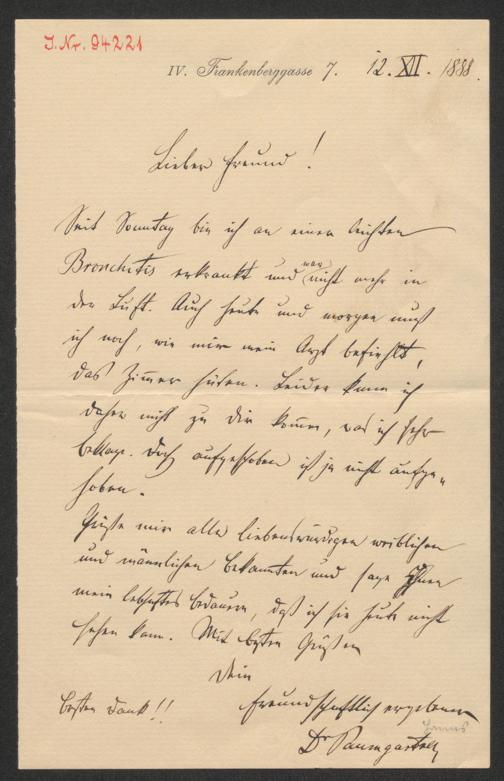 J. Nr. 94221
IV. Frankenberggasse 7. 12. XII. 1888.
Lieber Freund!
Seit Sonntag bin ich an einer leichten
Bronchitis erkrankt und war nicht mehr in
der Luft. Auch heute und morgen muß
ich noch, wie mir mein Arzt befiehlt,
das Zimmer hüten. Leider kann ich
daher nicht zu Dir kommen, was ich sehr
beklage. Doch aufgeschoben ist ja nicht aufge-
hoben.
Grüße mir alle liebenswürdigen weiblichen
und männlichen Bekannten und sage Ihnen
mein lebhaftes Bedauern, daß ich sie heute nicht
sehen kann. Mit besten Grüßen
Dein
Besten Dank!! freundschaftlich ergebener
Dr Paumgartner